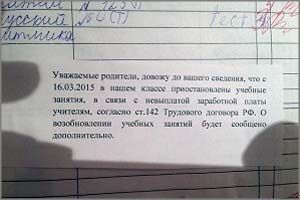 № 123(
усский № 6(Т) Тест
Уважаемые родители, довожу до вашего сведения, что с
16.03.2015 в нашем классе приостановлены учебные
занятия, в связи с невыплатой заработной платы
учителям, согласно ст.142 Трудового договора РФ. О
возобновлении учебных занятий будет сообщено
дополнительно.